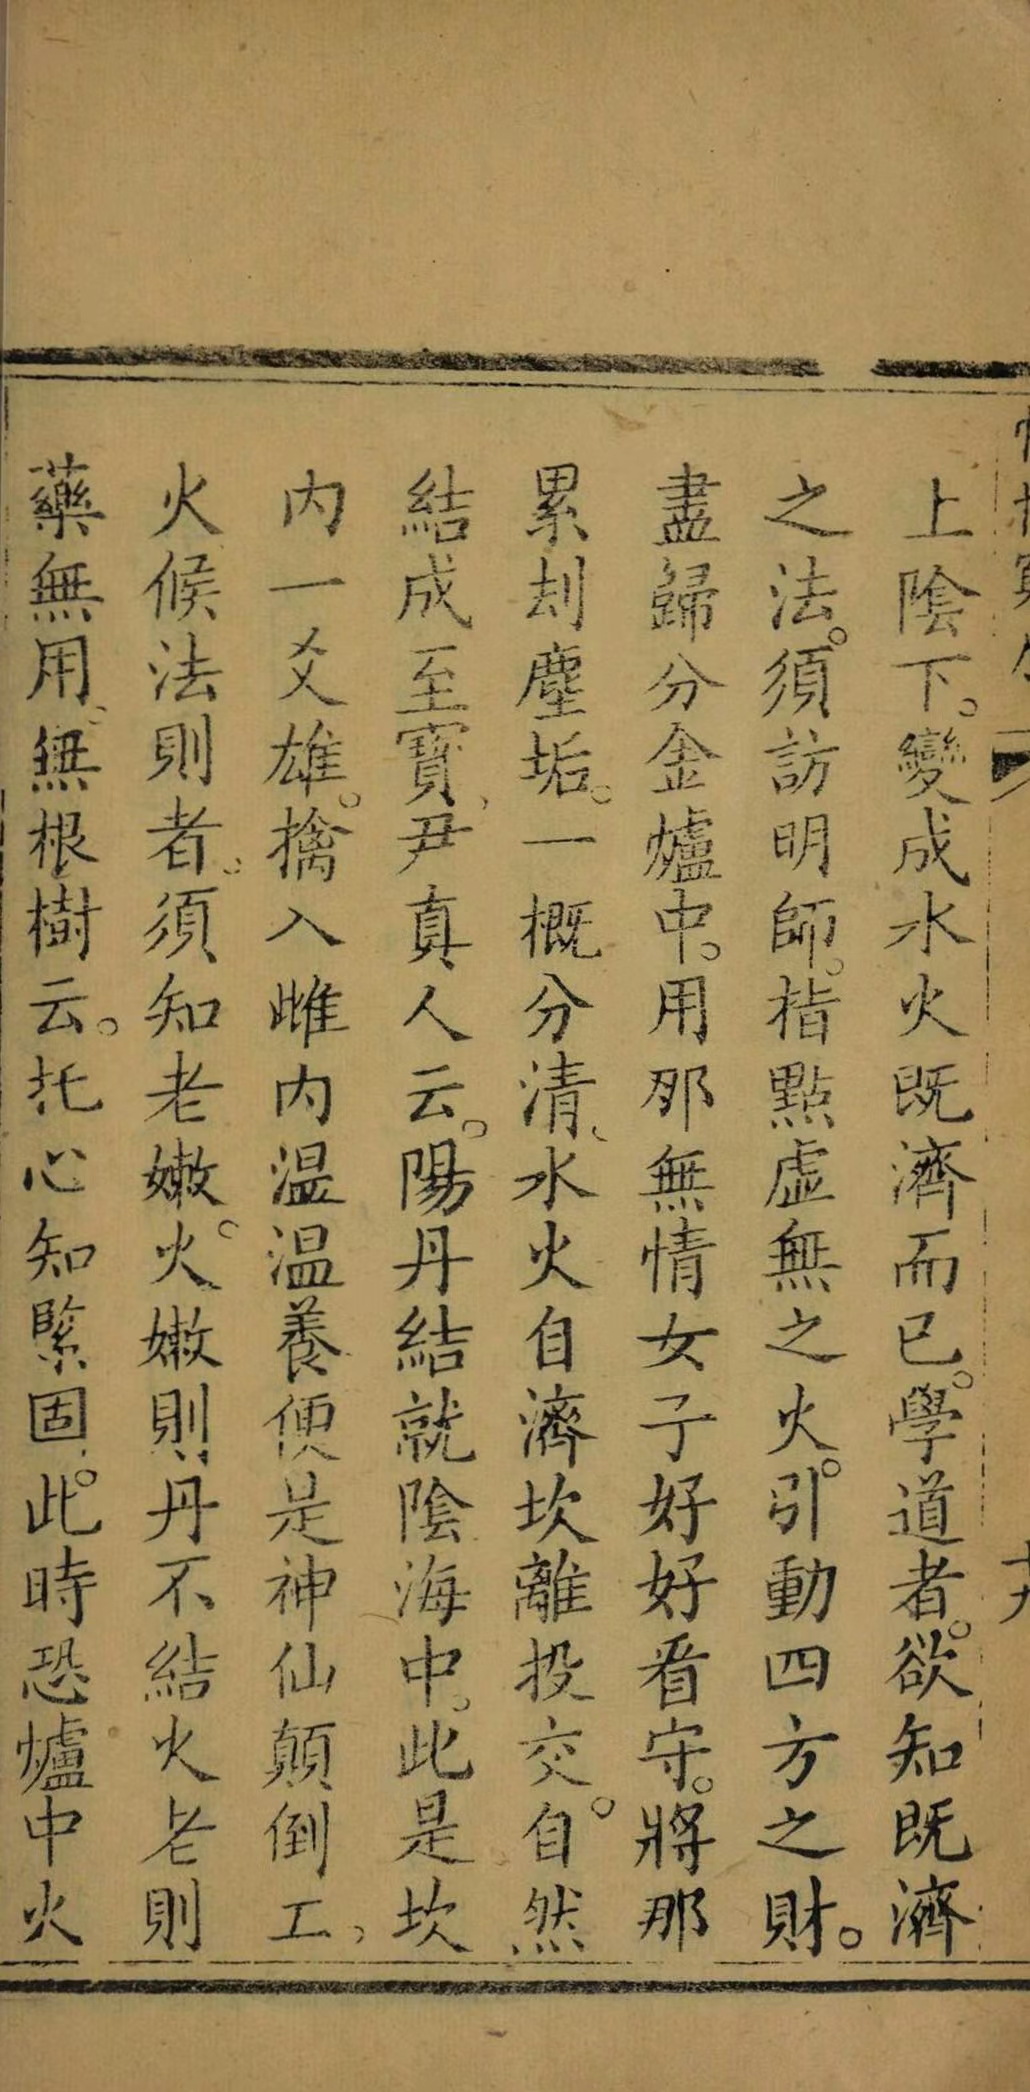 上陰下。變成水火既濟而已。學道者。欲知既濟
之法。須訪明師。指點虛無之火。引動四方之財。
盡歸分金爐中。用那無情女子好好看守。將那
累刦塵垢。一概分清、水火自濟坎離投交。自然
結成至寶、尹真人云。陽丹結就陰海中。此是坎
內一爻雄。擒入雌內溫溫養便是神仙顛倒工、
火候法則者、須知老嫩。火嫩則丹不結火老則
藥無用。無根樹云。托心知緊固。此時恐爐中火